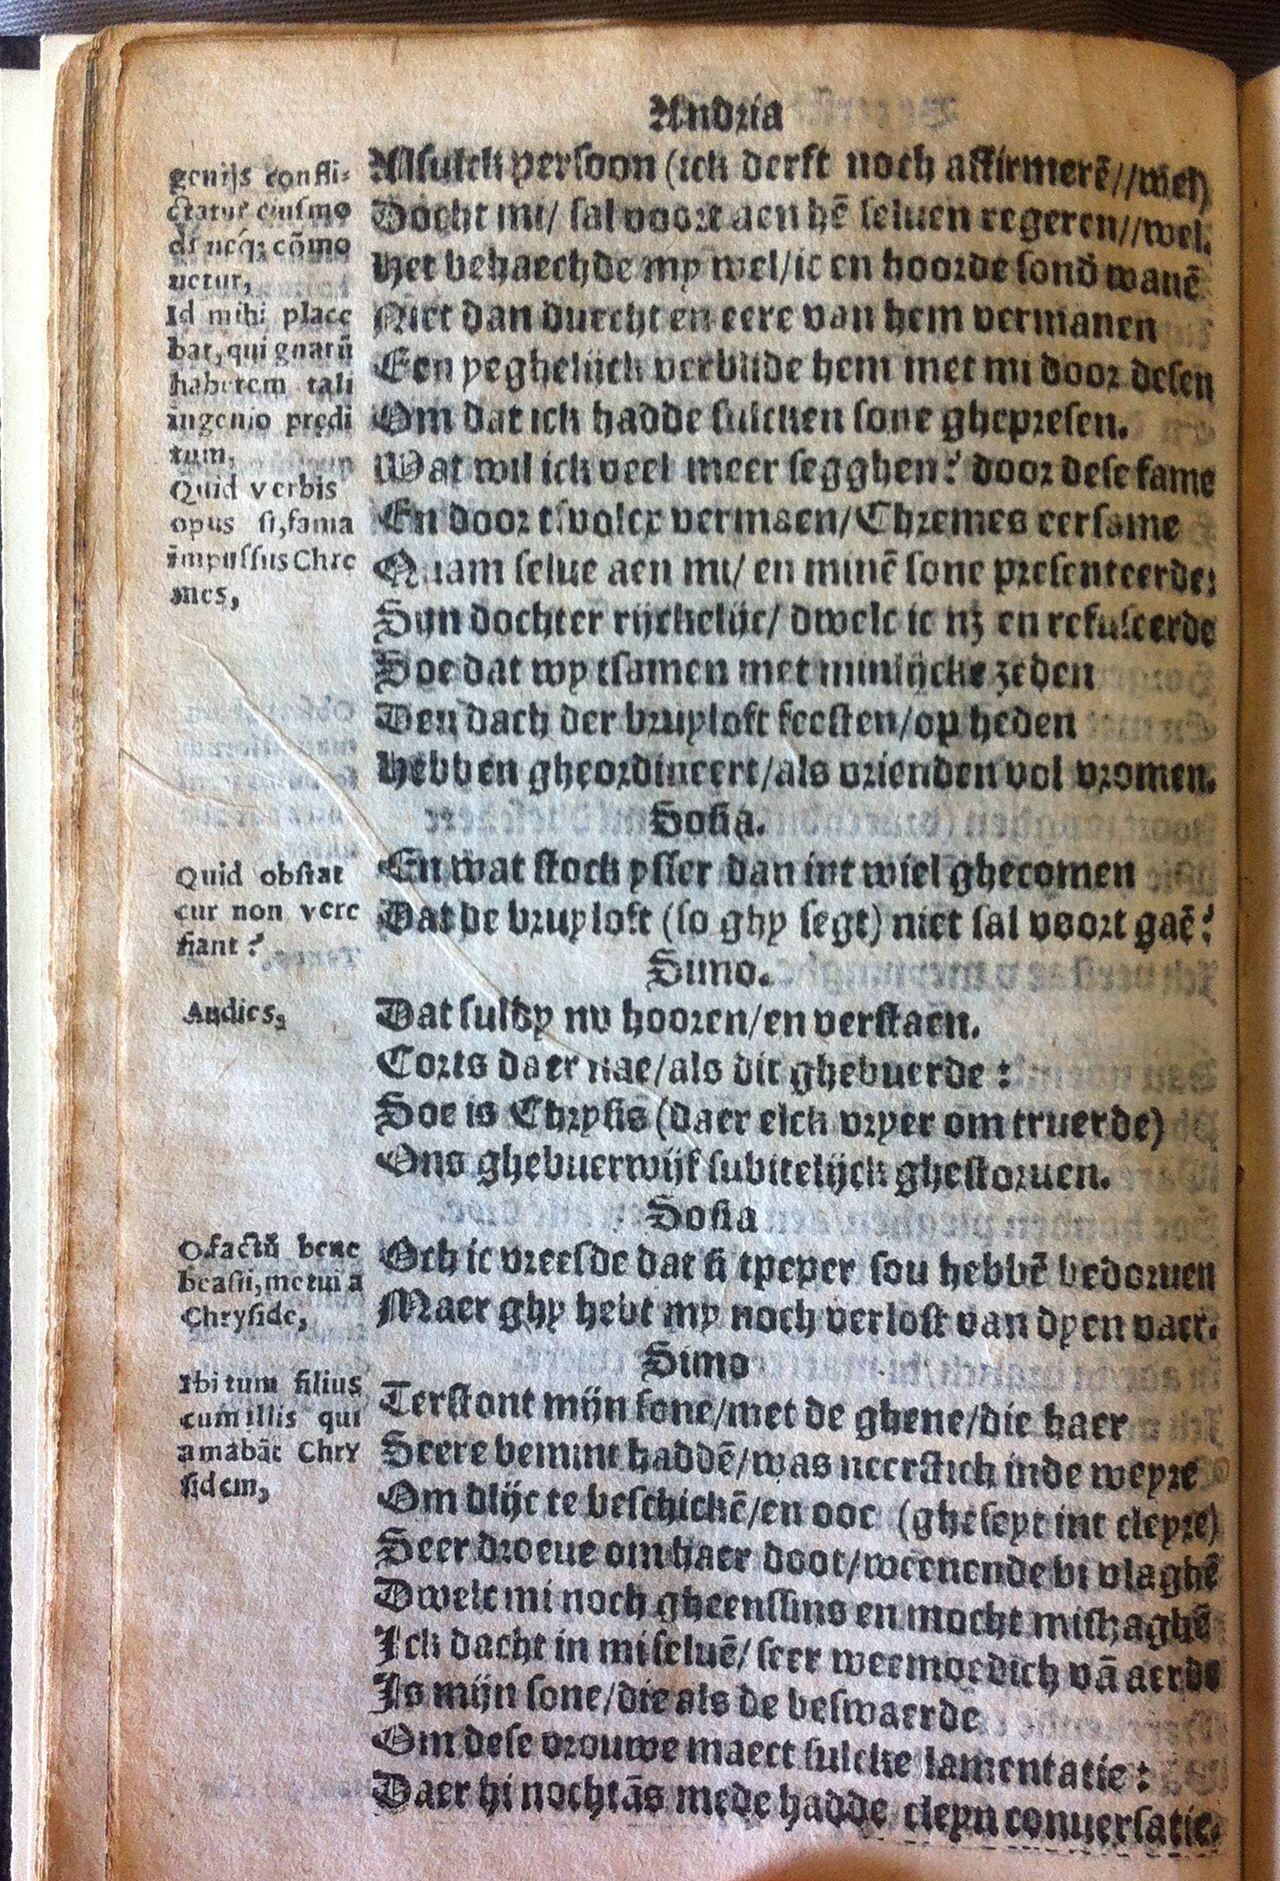 Andria
genijs confli-
ctatur eiusmo
di neq; cõmo
uetur,
Id mihi place
bat, qui gnatũ
haberem tali
ingenio prędi
tum,
Quid verbis
opus si, fama
impulsus Chre
mes,
Alsulck persoon (ick derft noch affirmerẽ//wel)
Docht mi/ sal voort aen hẽ seluen regeren//wel.
Het behaechde my wel/ic en hoorde sond wanẽ
Niet dan duecht en eere van hem vermanen
Een yeghelijck verblide hem met mi door desen
Om dat ick hadde sulcken sone ghepresen.
Wat wil ick veel meer segghen? door dese fame
En door tsvolcx vermaen/Chremes eersame
Quam selue aen mi/ en minẽ sone presenteerde:
Sijn dochter rijckelijc/ dwelc ic nz en refuseerde
Soe dat wy tsamen met minlijcke zeden
Den dach der bruyloft feesten/op heden
Hebben gheordineert/als vrienden vol vromen.
Sosia.
Quid obstat
cur non vere
fiant?
En wat stock ysser dan int wiel ghecomen
Dat de bruyloft (so ghy segt) niet sal voort gaẽ?
Simo.
Audies,
Dat suldy nv hooren/en verstaen.
Corts daer nae/als dit ghebuerde:
Soe is Chrysis (daer elck vryer om truerde)
Ons ghebuerwijf subitelijck ghestoruen.
Sosia
O factũ bene
beasti, metui a
Chryside,
Och ic vreesde dat si tpeper sou hebbẽ bedoruen
Maer ghy hebt my noch verlost van dyen vaer.
Simo
Ibi tum filius
cum illis qui
amabãt Chry
sidem,
Terstont mijn sone/met de ghene/die haer
Seere bemint haddẽ/was neerstich inde weyre
Om dlijc te beschickẽ/en ooc (gheseyt int cleyre)
Seer droeue om haer doot/weenende bi vlaghẽ
Dwelc mi noch gheenssins en mocht mishaghẽ
Ick dacht in mi seluẽ/ seer weemoedich vã aerde
Is mijn sone/die als de beswaerde
Om dese vrouwe maect sulcke lamentatie:
Daer hi nochtãs mede hadde cleyn conuersatie.